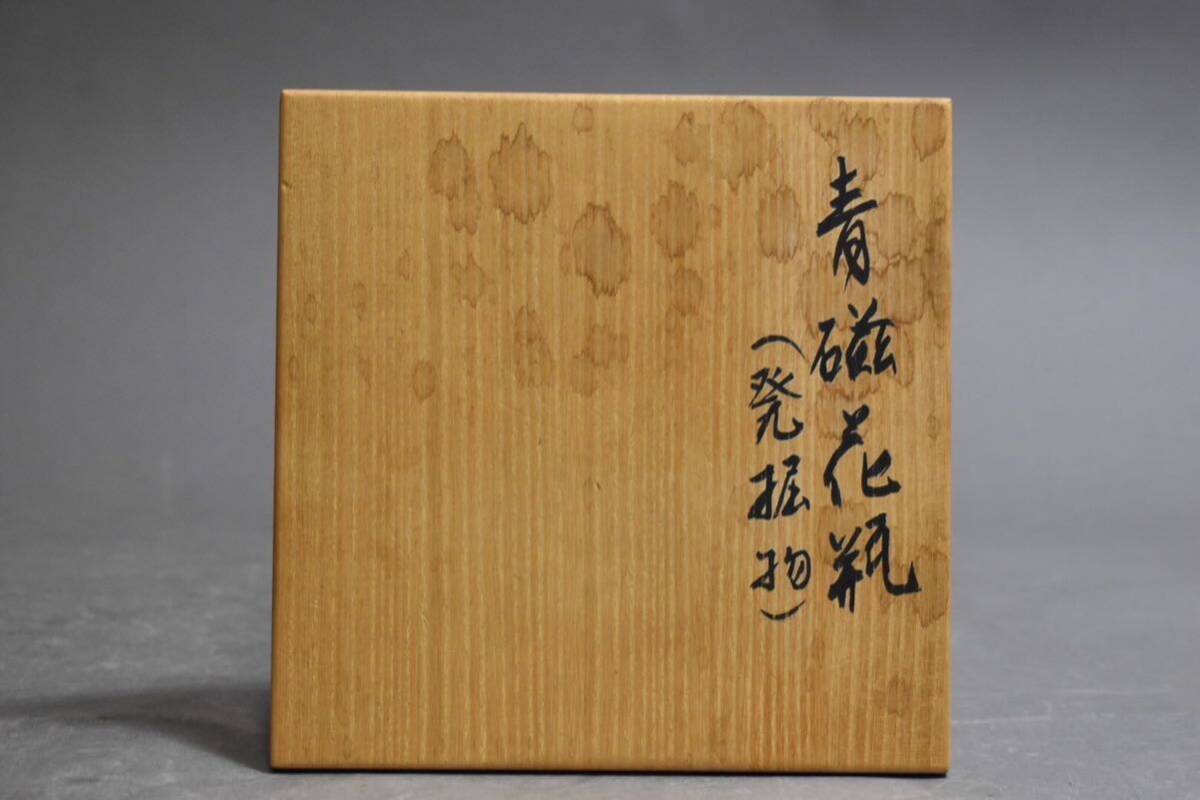 青磁花瓶
(発掘物)